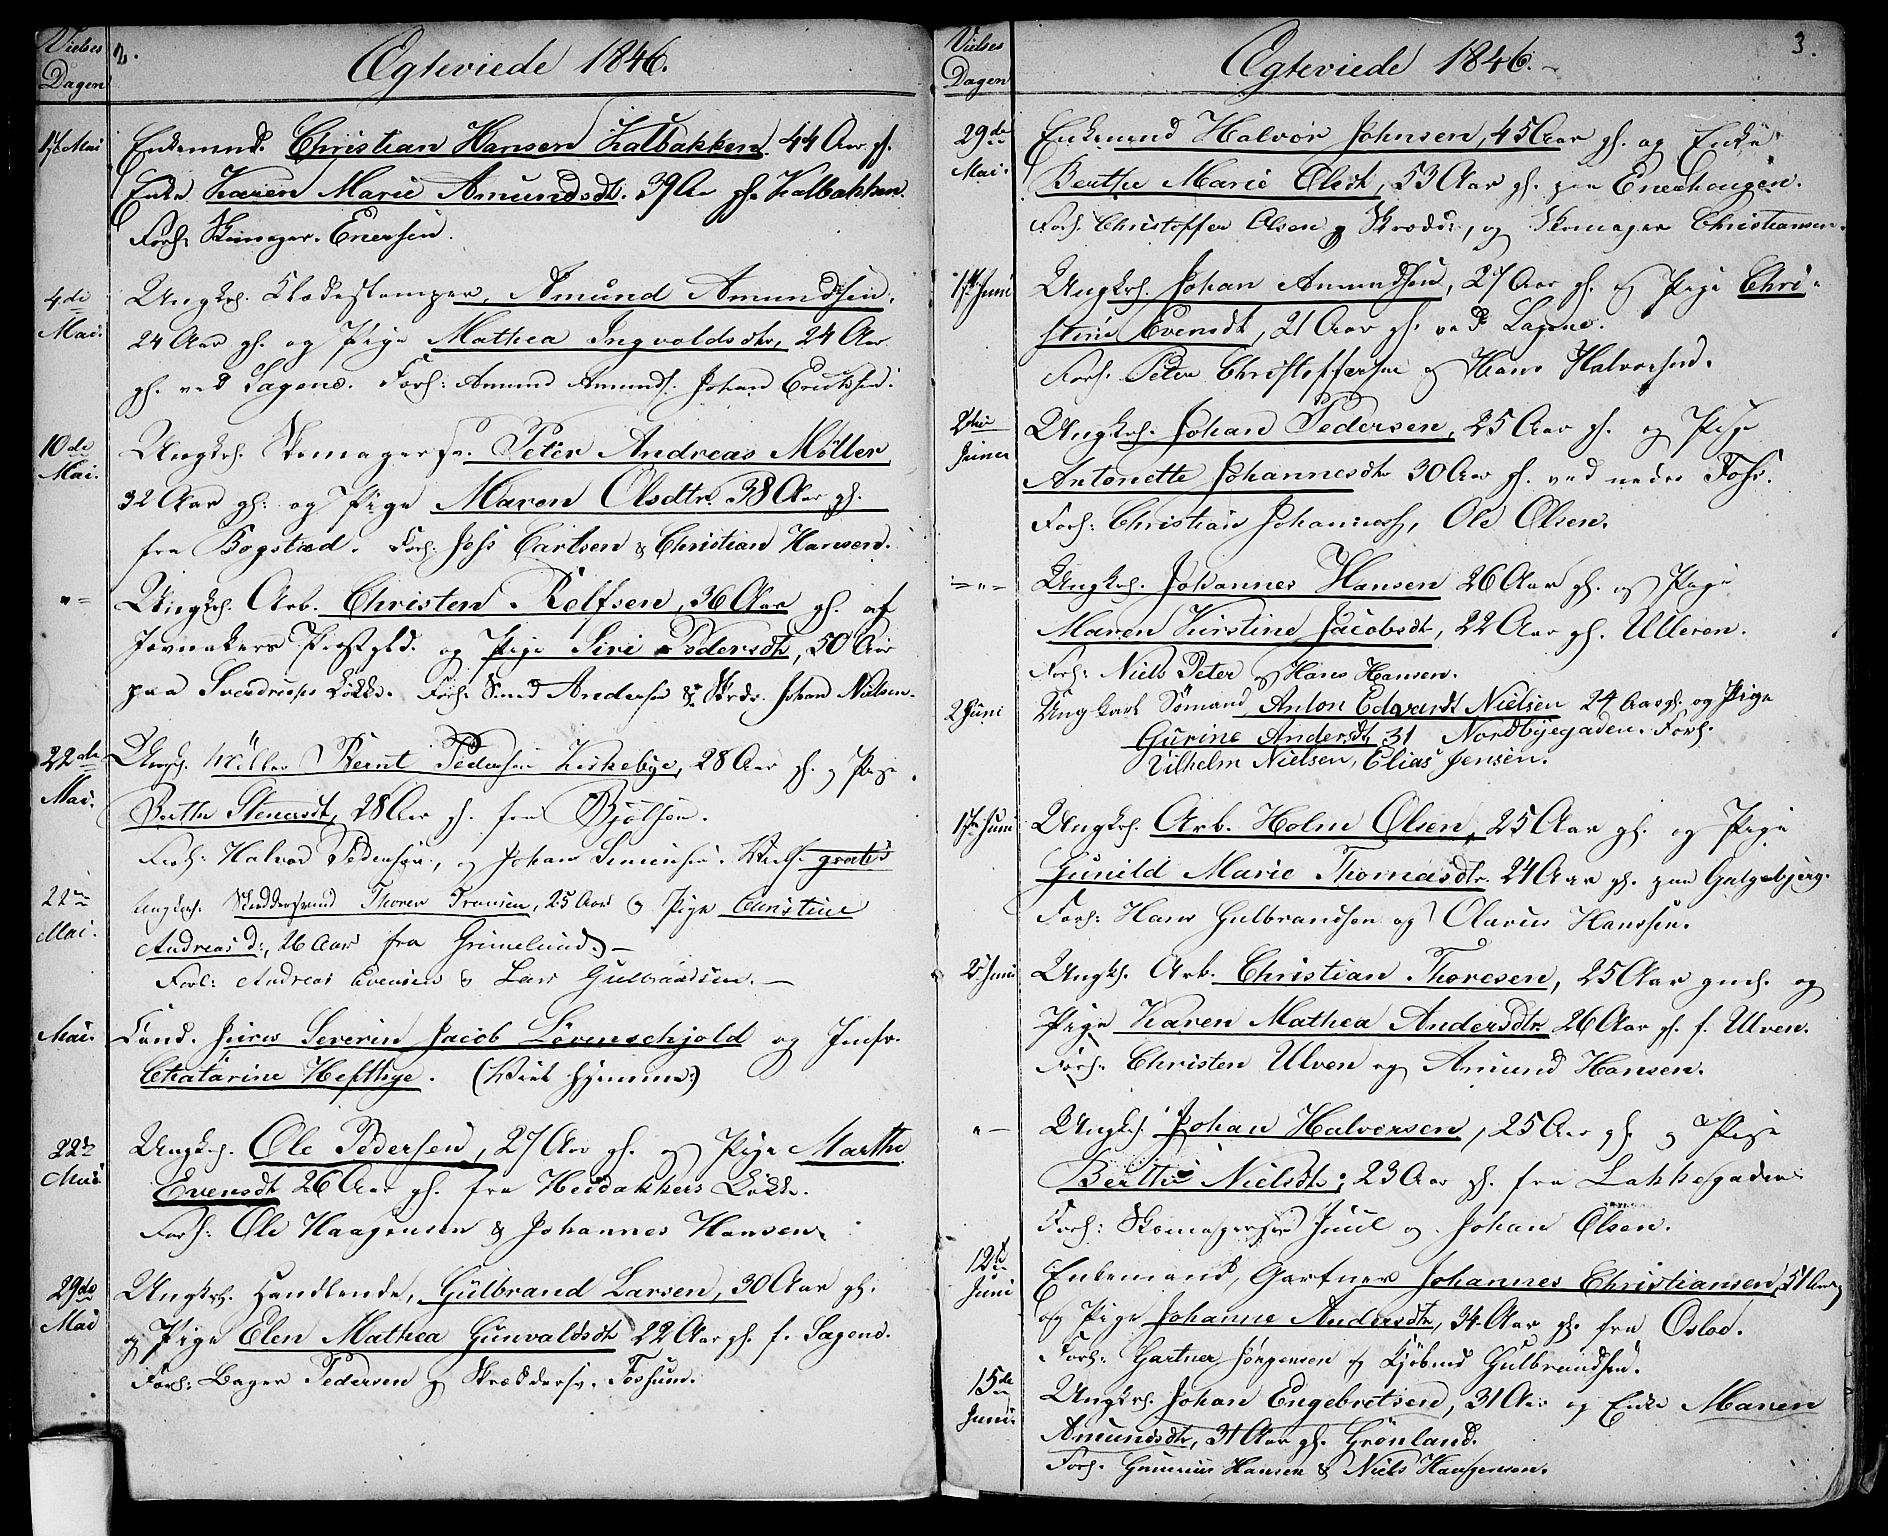 Vielses Dagen
2.
Ægteviede 1846.
1ste Mai
Enkemnd. Christian Hansen Kalbakken. 44 Aar gl.
Enke Karen Marie Amundsdt. 39 Aar gl. Kalbakken.
Forl: Skomager. Enersen.
4de Mai.
Ungkrl. Klædestamper, Amund Amundsen,
24 Aar gl. og Pige Mathea Ingvoldsdtr, 24 Aar
gl. ved Sagene. Forl: Amund Amunds. Johan Eriksen.
10de Mai.
Ungkrl. Skomagersv. Peter Andreas Möller
32 Aar gl: og Pige Maren Olsdtr. 38 Aar gl.
fra Bogstad. Forl: Johs Carlsen & Christian Hansen.
" =
Ungkrl. Arb. Christen Rolfsen, 36 Aar gl. af
Jevnakers Præstgld. og Pige Siri Pedersdt, 50 Aar
paa Løkke. Forl: Smed Andersen & Skrdr. Johan Nielsen.
22de Mai.
Ungk. Möller Bernt Pedersen Kirkebye, 28 Aar gl. og Pige
Berthe Stenersdt, 28 Aar gl. fra Bjölsen.
Forl: Halvor Pedersen, og Johan Simensen. gratis
22de Mai.
Ungkrl. Skreddersvend Thorer Fransen, 25 Aar & Pige Christine
Andreasd:, 26 Aar fra Grimelund. —
Forl: Andreas Evensen & Lars Gulbrandsen. —
Mai.
Cand. juris Severin Jacob Lövenschjold og Jomfr.
Chatarine Hefthye. (Viet hjemme.)
22de Mai
Ungkrl. Ole Pedersen, 27 Aar gl. og Pige Marthe
Evensdt 26 Aar gl. fra Heidakkers Løkke.
Forl: Ole Haagensen & Johannes Hansen.
29de Mai
Ungkrl. Handlende, Gulbrand Larsen, 30 Aar gl.
og Pige Elen Mathea Gunvaldsdt 22 Aar gl. f. Sagene.
Forl: Bager Pedersen og Skræddersv. Fossum.
Vielses Dagen
Ægteviede 1846. —
3.
29de Mai.
Enkemand Halvor Johnsen, 45 Aar gl. og Enke
Berthe Marie Olsdt, 53 Aar gl. paa Enerhougen.
Forl. Christoffer Olsen Skrædd:, og Skomager Christiansen.
1ste Juni
Ungkrl. Johan Amundsen, 27 Aar gl. og Pige Chri-
stine Evensdt, 21 Aar gl. ved Sagene.
Forl. Peter Christoffersen og Hans Halvorsen.
2den Junei
Ungkrl. Johan Pedersen, 25 Aar gl. og Pige
Antonette Johannesdtr 30 Aar gl. ved nedre Foss.
Forl: Christian Johanness, Ole Olsen.
= " =
Ungkrl. Johannes Hansen 26 Aar gl. og Pige
Maren Kirstine Jacobsdt, 22 Aar gl. Ulleren.
Forl: Niels Peter og Hans Hansen.
2 Juni
Ungkarl Sömand Anton Edvardt Nielsen 24 Aar gl. og Pige
Gurine Andersdt, 31 Nordbyegaden. Forl.
Vilhelm Nielsen, Elias Jensen.
Juni
Ungkrl. Arb. Holm Olsen, 25 Aar gl. og Pige
Gunild Marie Thomasdtr. 24 Aar gl. paa Galgebjerg.
Forl: Hans Gulbrandsen og Olavus Hanssen.
Juni
Ungkrl. Arb. Christian Thoresen, 25 Aar gml. og
Pige Karen Mathea Andersdtr. 26 Aar gl. f. Ulven.
Forl: Christen Ulven og Amund Hansen.
" —
Ungkrl. Johan Halvorsen, 25 Aar gl. og Pige
Berthe Nielsdt; 23 Aar gl. fra Lakkegaden
Forl: Skomagersv Juul og Johan Olsen.
12te Juni
Enkemand, Gartner Johannes Christiansen, 51 Aar
og Pige Johanne Andersdtr, 34 Aar gl. fra Oslo.
Forl: Gartner Jörgensen og Kjöbmd Gulbrandsen.
15de Juni.
Ungkrl. Johan Engebretsen, 31 Aar og Enke Maren
Amundsdtr, 31 Aar gl. Grönland.
Forl. Gunerius Hansen & Niels Haagensen.